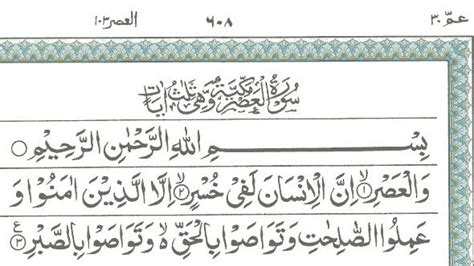 عمّ ٣٠ ٦٠٨ العصر ١٠٣
سُوْرَةُ الْعَصْرِ مَكِّيَّةٌ وَّهِيَ ثَلٰثُ اٰيَاتٍ
بِسْمِ اللّٰهِ الرَّحْمٰنِ الرَّحِيْمِ ○
وَالْعَصْرِ ۙ‏﴿۱﴾ اِنَّ الْاِنْسَانَ لَفِيْ خُسْرٍ ۙ‏﴿۲﴾ اِلَّا الَّذِيْنَ اٰمَنُوْا وَ
عَمِلُوا الصّٰلِحٰتِ وَتَوَاصَوْا بِالْحَقِّ ۙ۬ وَتَوَاصَوْا بِالصَّبْرِ ‏﴿۳﴾ ع